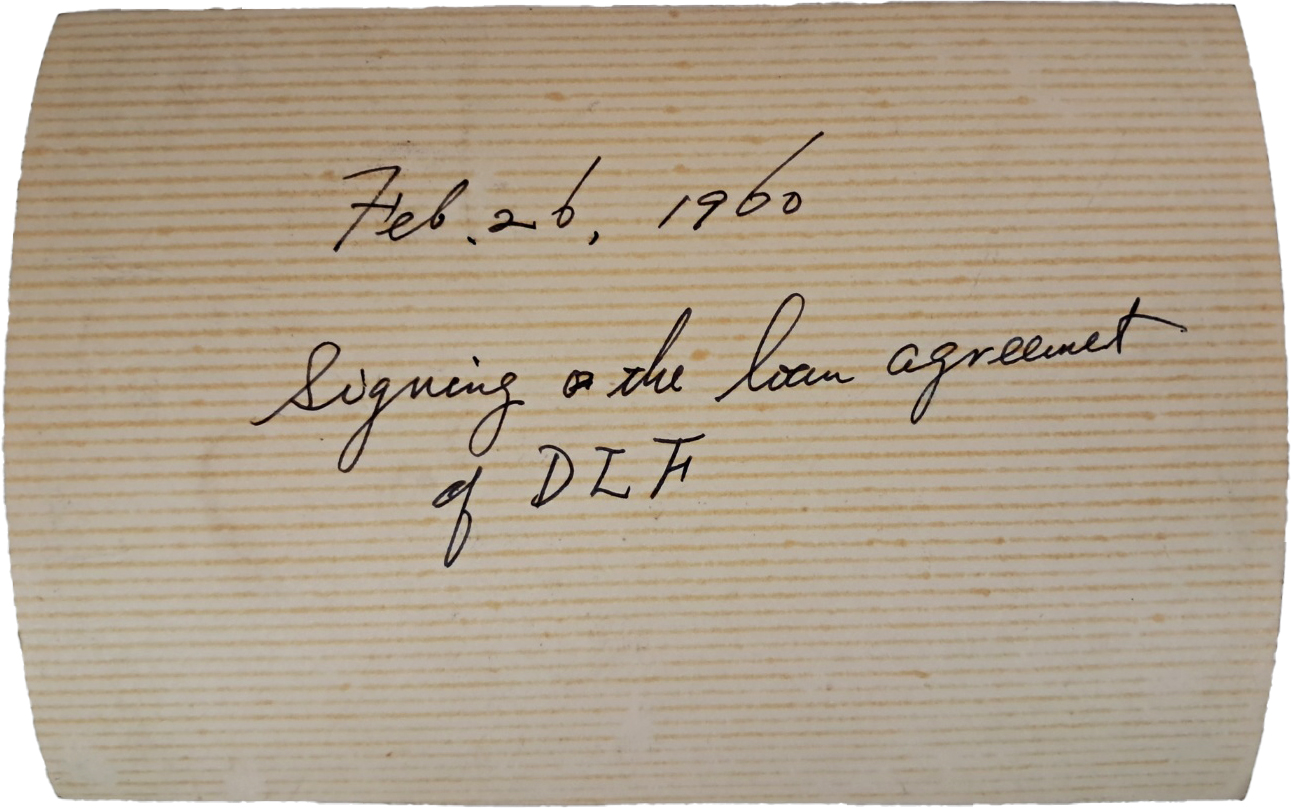 Feb. 26, 1960
Signing the loan agreement
of DLF